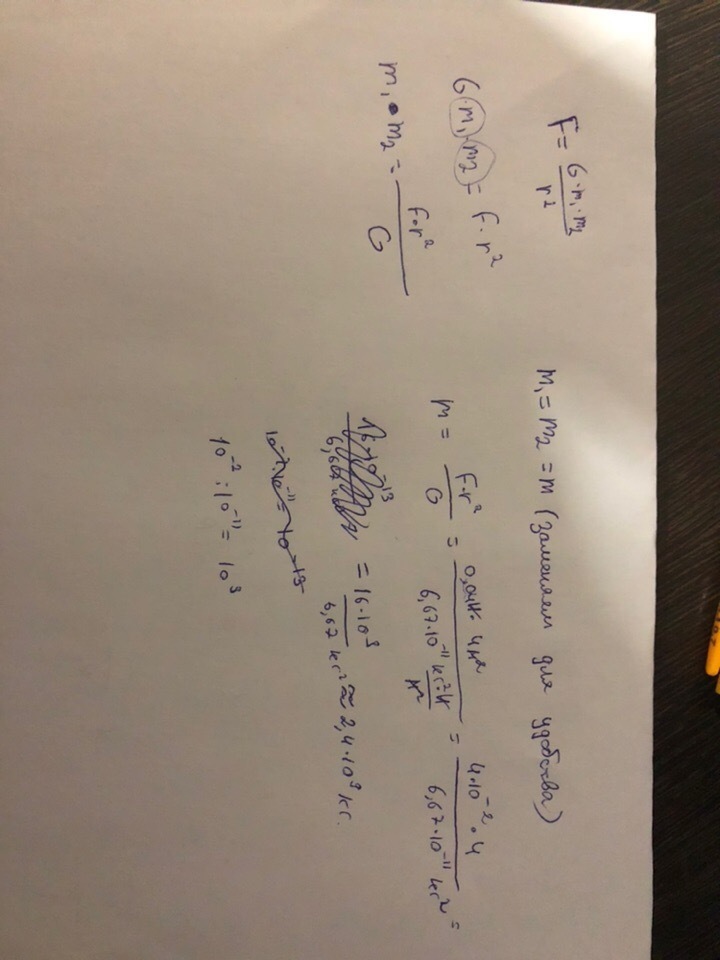 F = G·m₁·m₂ / r²
G·m₁·m₂ = F·r²
m₁·m₂ = F·r² / G
m₁ = m₂ = m (заменяем для удобства)
m = F·r² / G = 0,04Н·4м² / 6,67·10⁻¹¹ кг²·Н / м² = 4·10⁻²·4 / 6,67·10⁻¹¹ кг² =
= 16·10⁹ / 6,67 кг² ≈ 2,4·10⁹ кг.
10⁻²:10⁻¹¹ = 10⁹